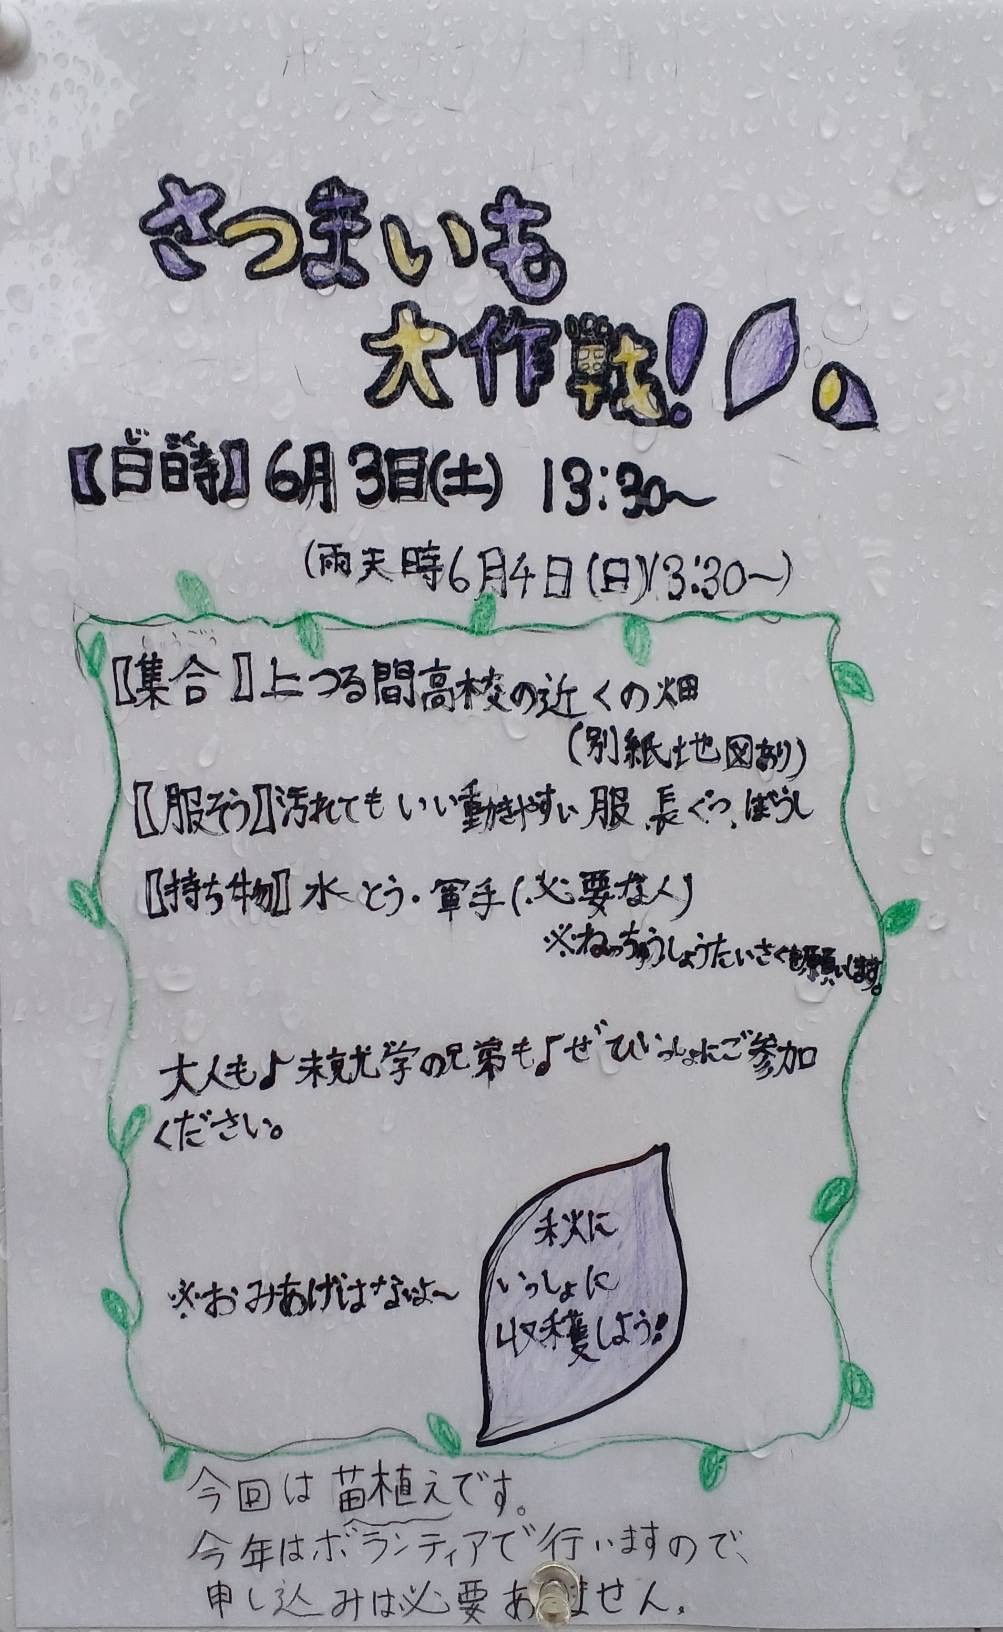 さつまいも
大作戦!
【日時】6月3日(土) 13:30~
(雨天時6月4日(日)13:30~)
しゅうごう
【集合】上つる間高校の近くの畑
(別紙地図あり)
【服そう】汚れてもいい動きやすい服、長ぐつ、ぼうし
【持ち物】水とう・軍手(必要な人)
※ねっちゅうしょうたいさくお願いします。
大人も♪未就学の兄弟も♪ぜひいっしょにご参加
ください。
秋に
いっしょに
収穫しよう!
※おみあげはないよ~
今回は苗植えです。
今年はボランティアで行いますので、
申し込みは必要ありません。